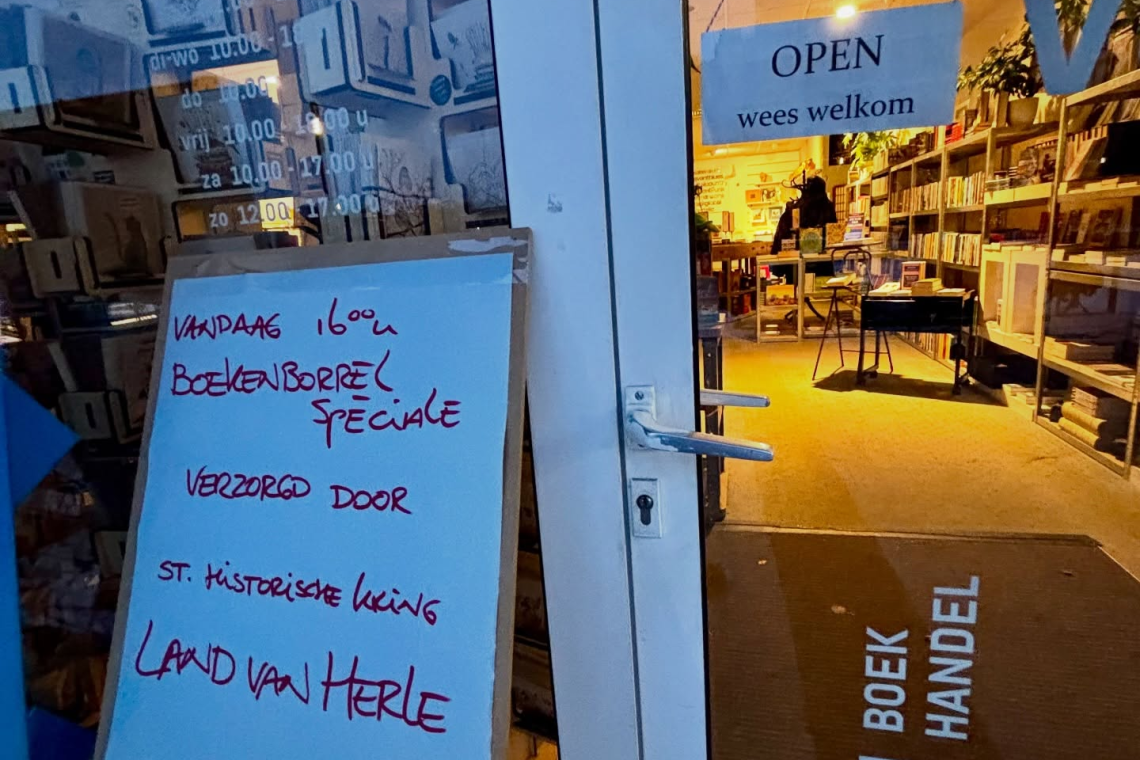 di-wo 10.00 -
do 10.00
vrij 10.00 - 18.00 u
za 10.00 - 17.00 u
zo 12.00 - 17.00 u
OPEN
wees welkom
VANDAAG 16⁰⁰u
BOEKENBORREL
SPECIALE
VERZORGD DOOR
ST. HISTORISCHE KRING
LAND VAN HERLE
BOEK
HANDEL